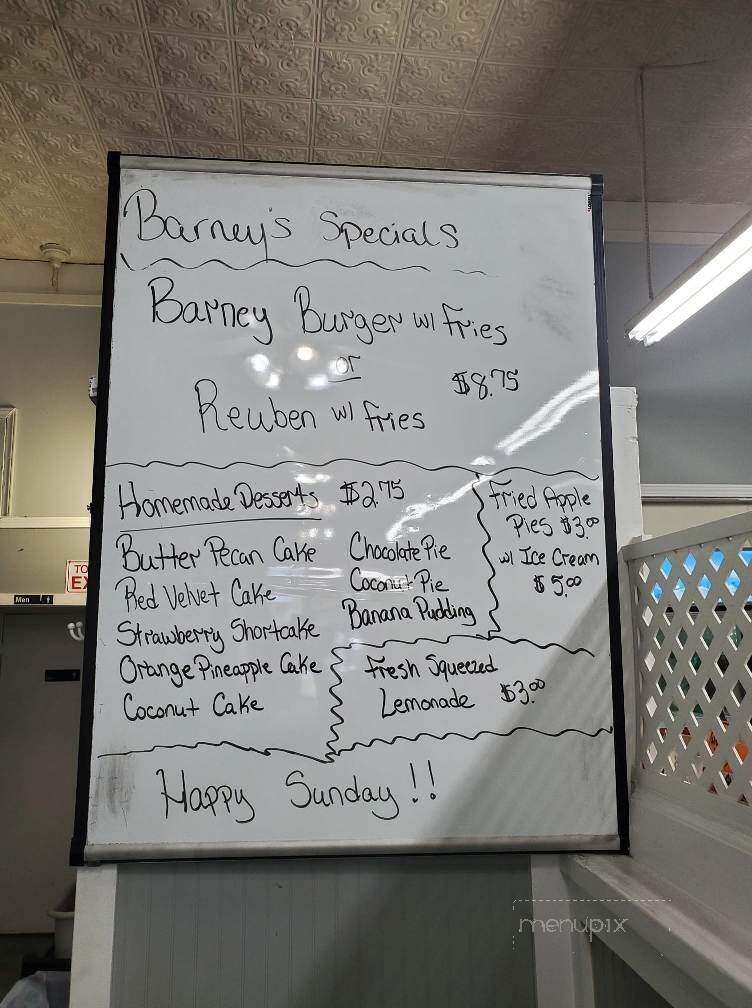 Barney's Specials
Barney Burger w/ fries
or
$8.75
Reuben w/ fries
Homemade Desserts $2.75
Butter Pecan Cake
Red Velvet Cake
Strawberry Shortcake
Orange Pineapple Cake
Coconut Cake
Chocolate Pie
Coconut Pie
Banana Pudding
Fried Apple
Pies $3.00
w/ Ice Cream
$5.00
Fresh Squeezed
Lemonade $3.00
Happy Sunday!!
Men
menupix